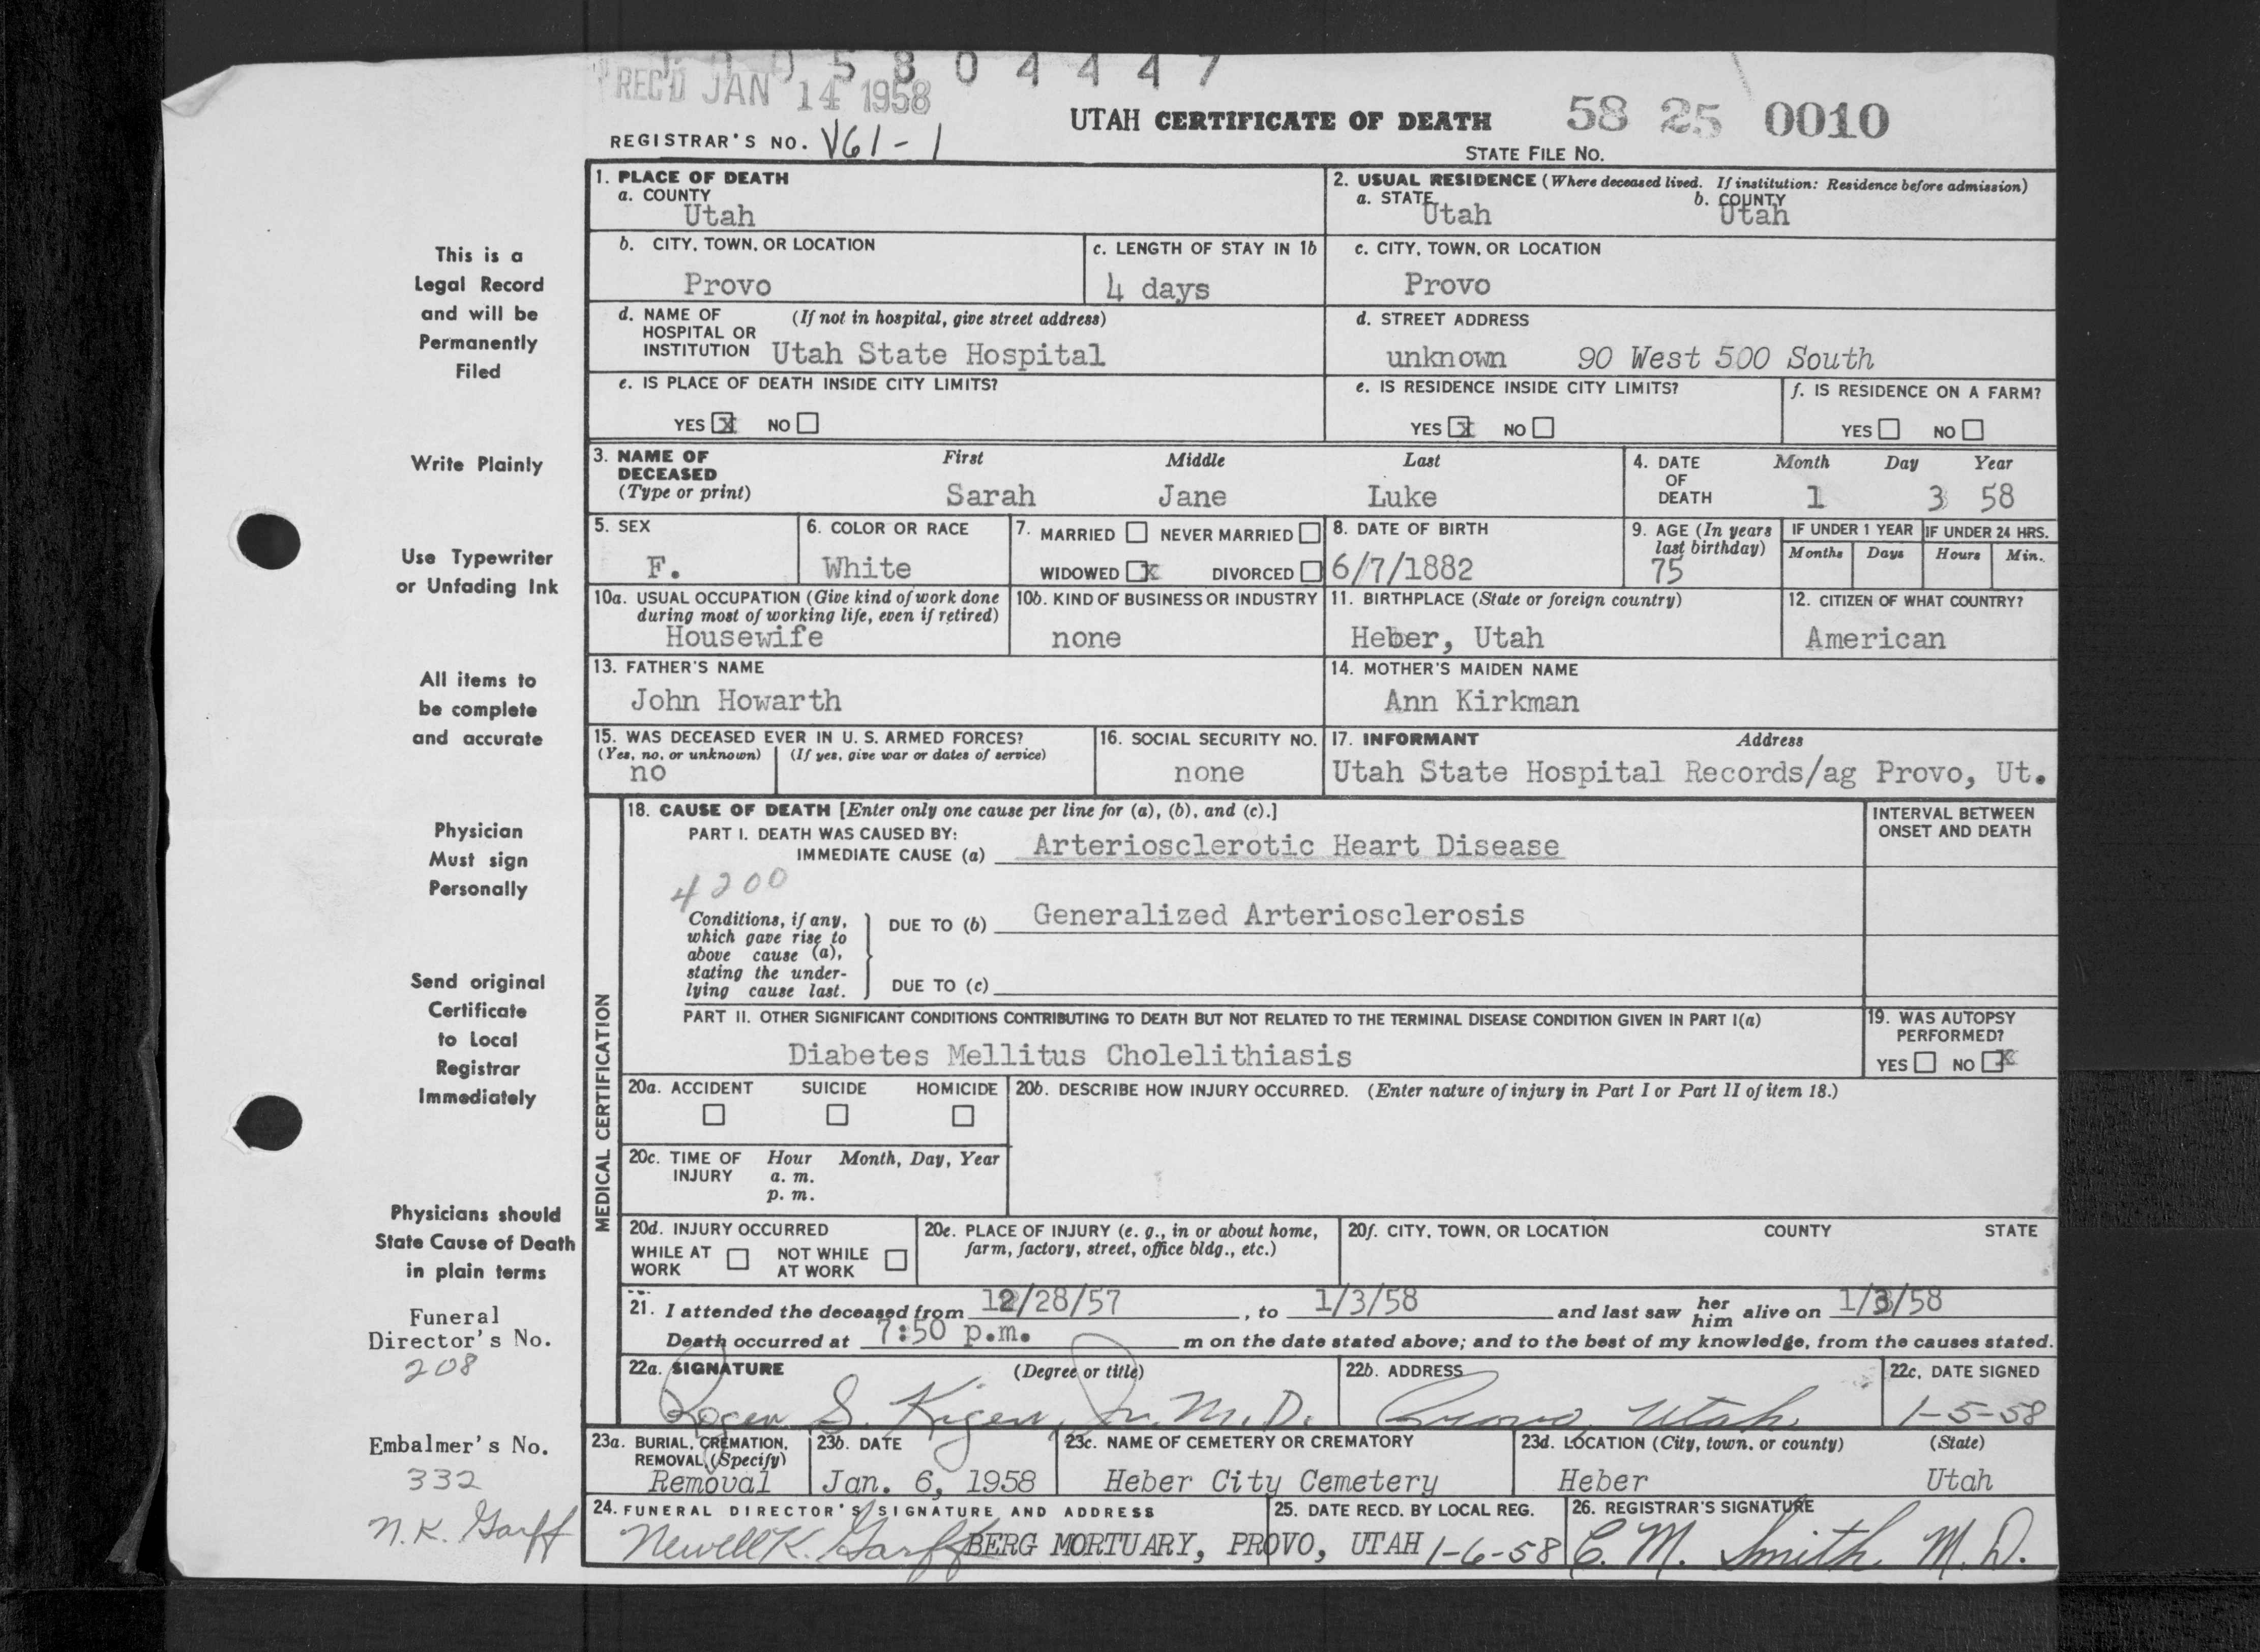 REC'D JAN 14 1958
5 8 0 4 4 4 7
UTAH CERTIFICATE OF DEATH
58 25 0010
REGISTRAR'S NO. V61-1
STATE FILE NO.
1. PLACE OF DEATH
a. COUNTY
Utah
2. USUAL RESIDENCE (Where deceased lived. If institution: Residence before admission)
a. STATE b. COUNTY
Utah Utah
b. CITY, TOWN, OR LOCATION
Provo
c. LENGTH OF STAY IN 1b
4 days
c. CITY, TOWN, OR LOCATION
Provo
d. NAME OF (If not in hospital, give street address)
HOSPITAL OR
INSTITUTION Utah State Hospital
d. STREET ADDRESS
unknown 90 West 500 South
e. IS PLACE OF DEATH INSIDE CITY LIMITS?
YES X NO
e. IS RESIDENCE INSIDE CITY LIMITS?
YES X NO
f. IS RESIDENCE ON A FARM?
YES NO
3. NAME OF DECEASED (Type or print)
First Middle Last
Sarah Jane Luke
4. DATE OF DEATH
Month Day Year
1 3 58
5. SEX
F.
6. COLOR OR RACE
White
7. MARRIED NEVER MARRIED
WIDOWED X DIVORCED
8. DATE OF BIRTH
6/7/1882
9. AGE (In years
last birthday)
75
IF UNDER 1 YEAR
Months Days
IF UNDER 24 HRS.
Hours Min.
10a. USUAL OCCUPATION (Give kind of work done
during most of working life, even if retired)
Housewife
10b. KIND OF BUSINESS OR INDUSTRY
none
11. BIRTHPLACE (State or foreign country)
Heber, Utah
12. CITIZEN OF WHAT COUNTRY?
American
13. FATHER'S NAME
John Howarth
14. MOTHER'S MAIDEN NAME
Ann Kirkman
15. WAS DECEASED EVER IN U. S. ARMED FORCES?
(Yes, no, or unknown) (If yes, give war or dates of service)
no
16. SOCIAL SECURITY NO.
none
17. INFORMANT Address
Utah State Hospital Records/ag Provo, Ut.
MEDICAL CERTIFICATION
18. CAUSE OF DEATH [Enter only one cause per line for (a), (b), and (c).]
PART I. DEATH WAS CAUSED BY:
IMMEDIATE CAUSE (a) Arteriosclerotic Heart Disease
INTERVAL BETWEEN
ONSET AND DEATH
4200
Conditions, if any,
which gave rise to
above cause (a),
stating the under-
lying cause last.
DUE TO (b) Generalized Arteriosclerosis
DUE TO (c)
PART II. OTHER SIGNIFICANT CONDITIONS CONTRIBUTING TO DEATH BUT NOT RELATED TO THE TERMINAL DISEASE CONDITION GIVEN IN PART I(a)
Diabetes Mellitus Cholelithiasis
19. WAS AUTOPSY
PERFORMED?
YES NO X
20a. ACCIDENT SUICIDE HOMICIDE
20b. DESCRIBE HOW INJURY OCCURRED. (Enter nature of injury in Part I or Part II of item 18.)
20c. TIME OF INJURY
Hour Month, Day, Year
a. m.
p. m.
20d. INJURY OCCURRED
WHILE AT WORK NOT WHILE AT WORK
20e. PLACE OF INJURY (e. g., in or about home,
farm, factory, street, office bldg., etc.)
20f. CITY, TOWN, OR LOCATION COUNTY STATE
21. I attended the deceased from 12/28/57, to 1/3/58 and last saw her him alive on 1/3/58
Death occurred at 7:50 p.m. m on the date stated above; and to the best of my knowledge, from the causes stated.
22a. SIGNATURE (Degree or title)
Roger S. Kiger, Jr. M.D.
22b. ADDRESS
Provo, Utah
22c. DATE SIGNED
1-5-58
23a. BURIAL, CREMATION,
REMOVAL (Specify)
Removal
23b. DATE
Jan. 6, 1958
23c. NAME OF CEMETERY OR CREMATORY
Heber City Cemetery
23d. LOCATION (City, town, or county) (State)
Heber Utah
24. FUNERAL DIRECTOR'S SIGNATURE AND ADDRESS
Newell K. Garff BERG MORTUARY, PROVO, UTAH
25. DATE RECD. BY LOCAL REG.
1-6-58
26. REGISTRAR'S SIGNATURE
C. M. Smith M. D.
This is a
Legal Record
and will be
Permanently
Filed
Write Plainly
Use Typewriter
or Unfading Ink
All items to
be complete
and accurate
Physician
Must sign
Personally
Send original
Certificate
to Local
Registrar
Immediately
Physicians should
State Cause of Death
in plain terms
Funeral
Director's No.
208
Embalmer's No.
332
N. K. Garff